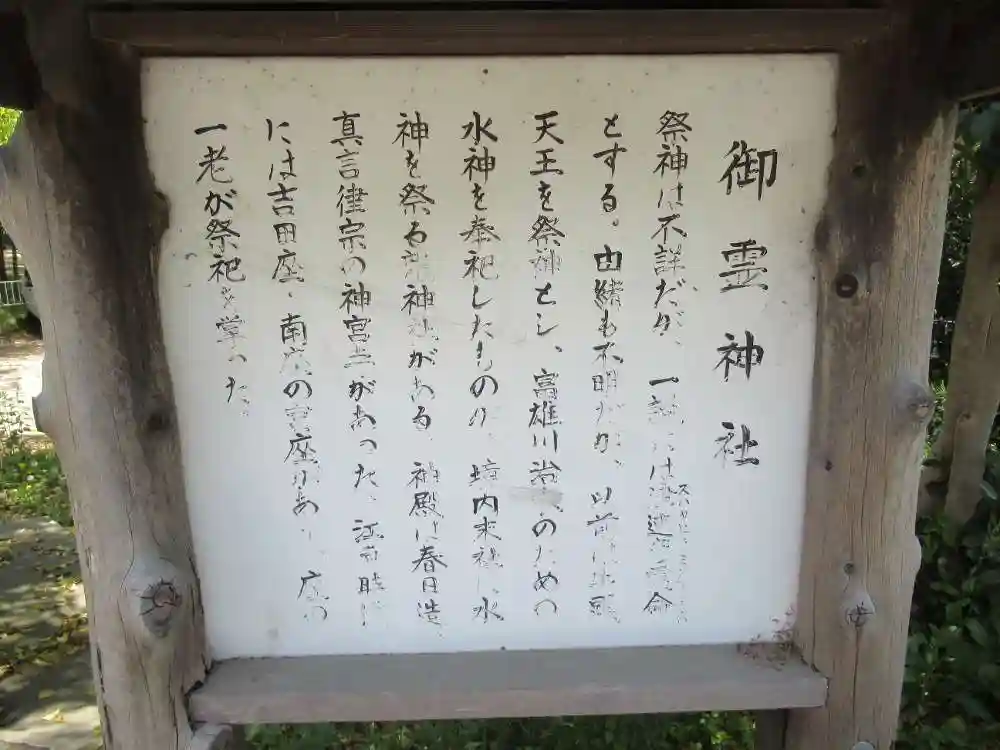 御霊神社
祭神は不詳だが、一説には 命
とする。由緒も不明だが、以前は牛頭
天王を祭神とし、富雄川治水のための
水神を奉祀したものの、境内末社に水
神を祭る 神社がある。神殿は春日造。
真言律宗の神宮寺があった。江戸時代
には吉田座・南座の宮座があり、座の
一老が祭祀を掌った。